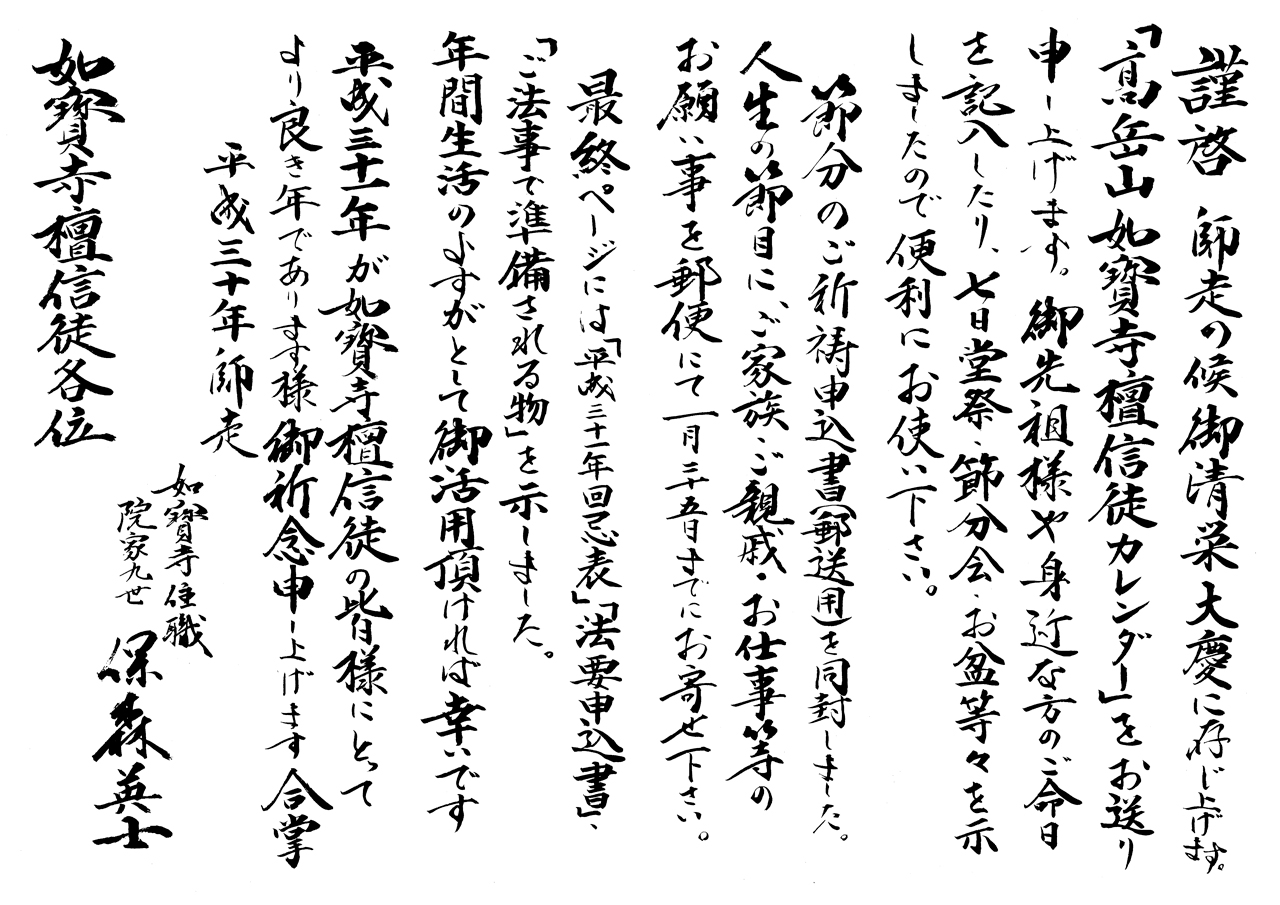 謹啓 師走の候御清栄大慶に存じ上げます。
「高岳山如寳寺檀信徒カレンダー」をお送り
申し上げます。御先祖様や身近な方のご命日
を記入したり、七日堂祭・節分会・お盆等々を示
しましたので便利にお使い下さい。
節分のご祈祷申込書(郵送用)を同封しました。
人生の節目に、ご家族・ご親戚・お仕事等の
お願い事を郵便にて一月二十五日までにお寄せ下さい。
最終ページには「平成三十一年回忌表」「法要申込書」、
「ご法事で準備される物」を示しました。
年間生活のよすがとして御活用頂ければ幸いです
平成三十一年が如寳寺檀信徒の皆様にとって
より良き年であります様御祈念申し上げます 合掌
平成三十年師走
如寳寺住職
院家九世
保森英士
如寳寺檀信徒各位